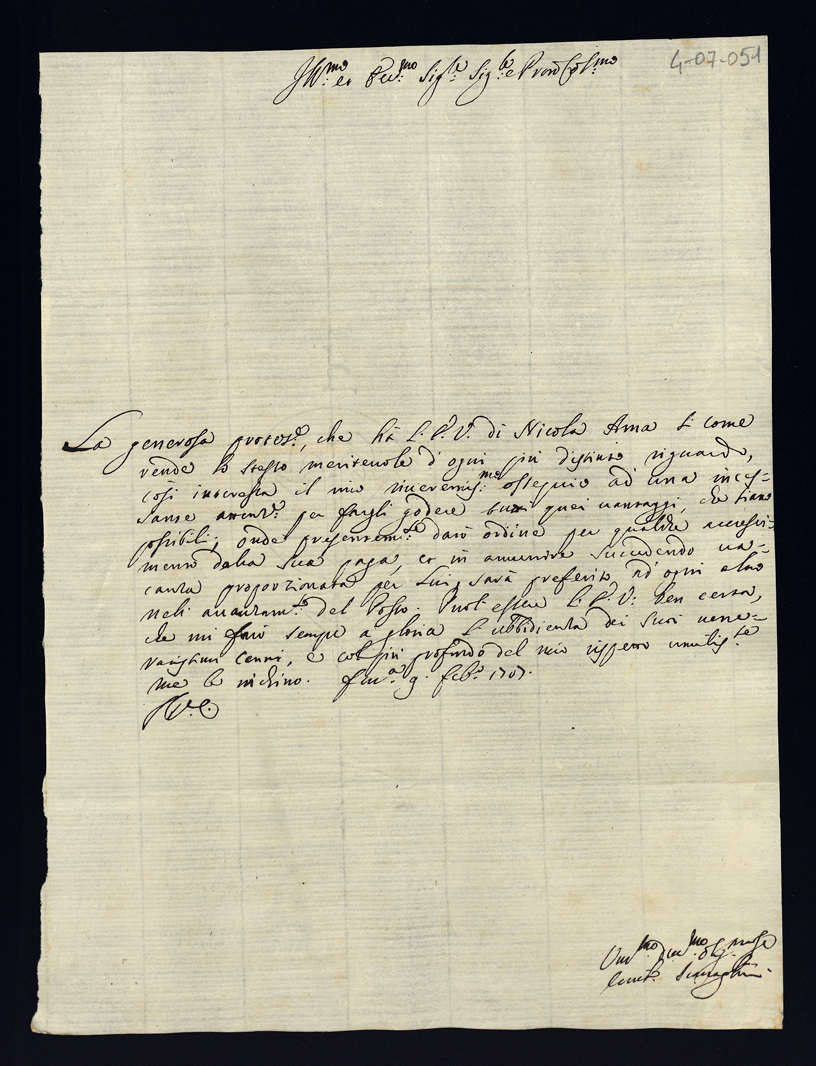 4-07-051
Ill.mo et Ecc.mo Sig.re Sig.re e Pron Col.mo
La generosa protet.e, che hà L'E.V. di Nicola Ama sì come
rende lo stesso meritevole d'ogni più distinto riguardo,
così interessa il mio riverentis.mo ossequio ad una inces-
sante attent.e per fargli godere tutti quei vantaggi, che siano
possibili; onde presentem.te darò ordine per qualche accresci-
mento della sua paga, et in avvenire succedendo va-
canza proporzionata per Lui, sarà preferito ad ogni altro
nell avanzam.to del Posto. Puol essere L'E.V. ben certa,
che mi farò sempre a gloria L'ubbidienza dei suoi vene-
ratissimi cenni, e col più profondo del mio rispetto umilis.te
me le inchino. 9 Feb.o 1707.
D.V.E.
Um.mo Dev.mo Ob. Serv.e